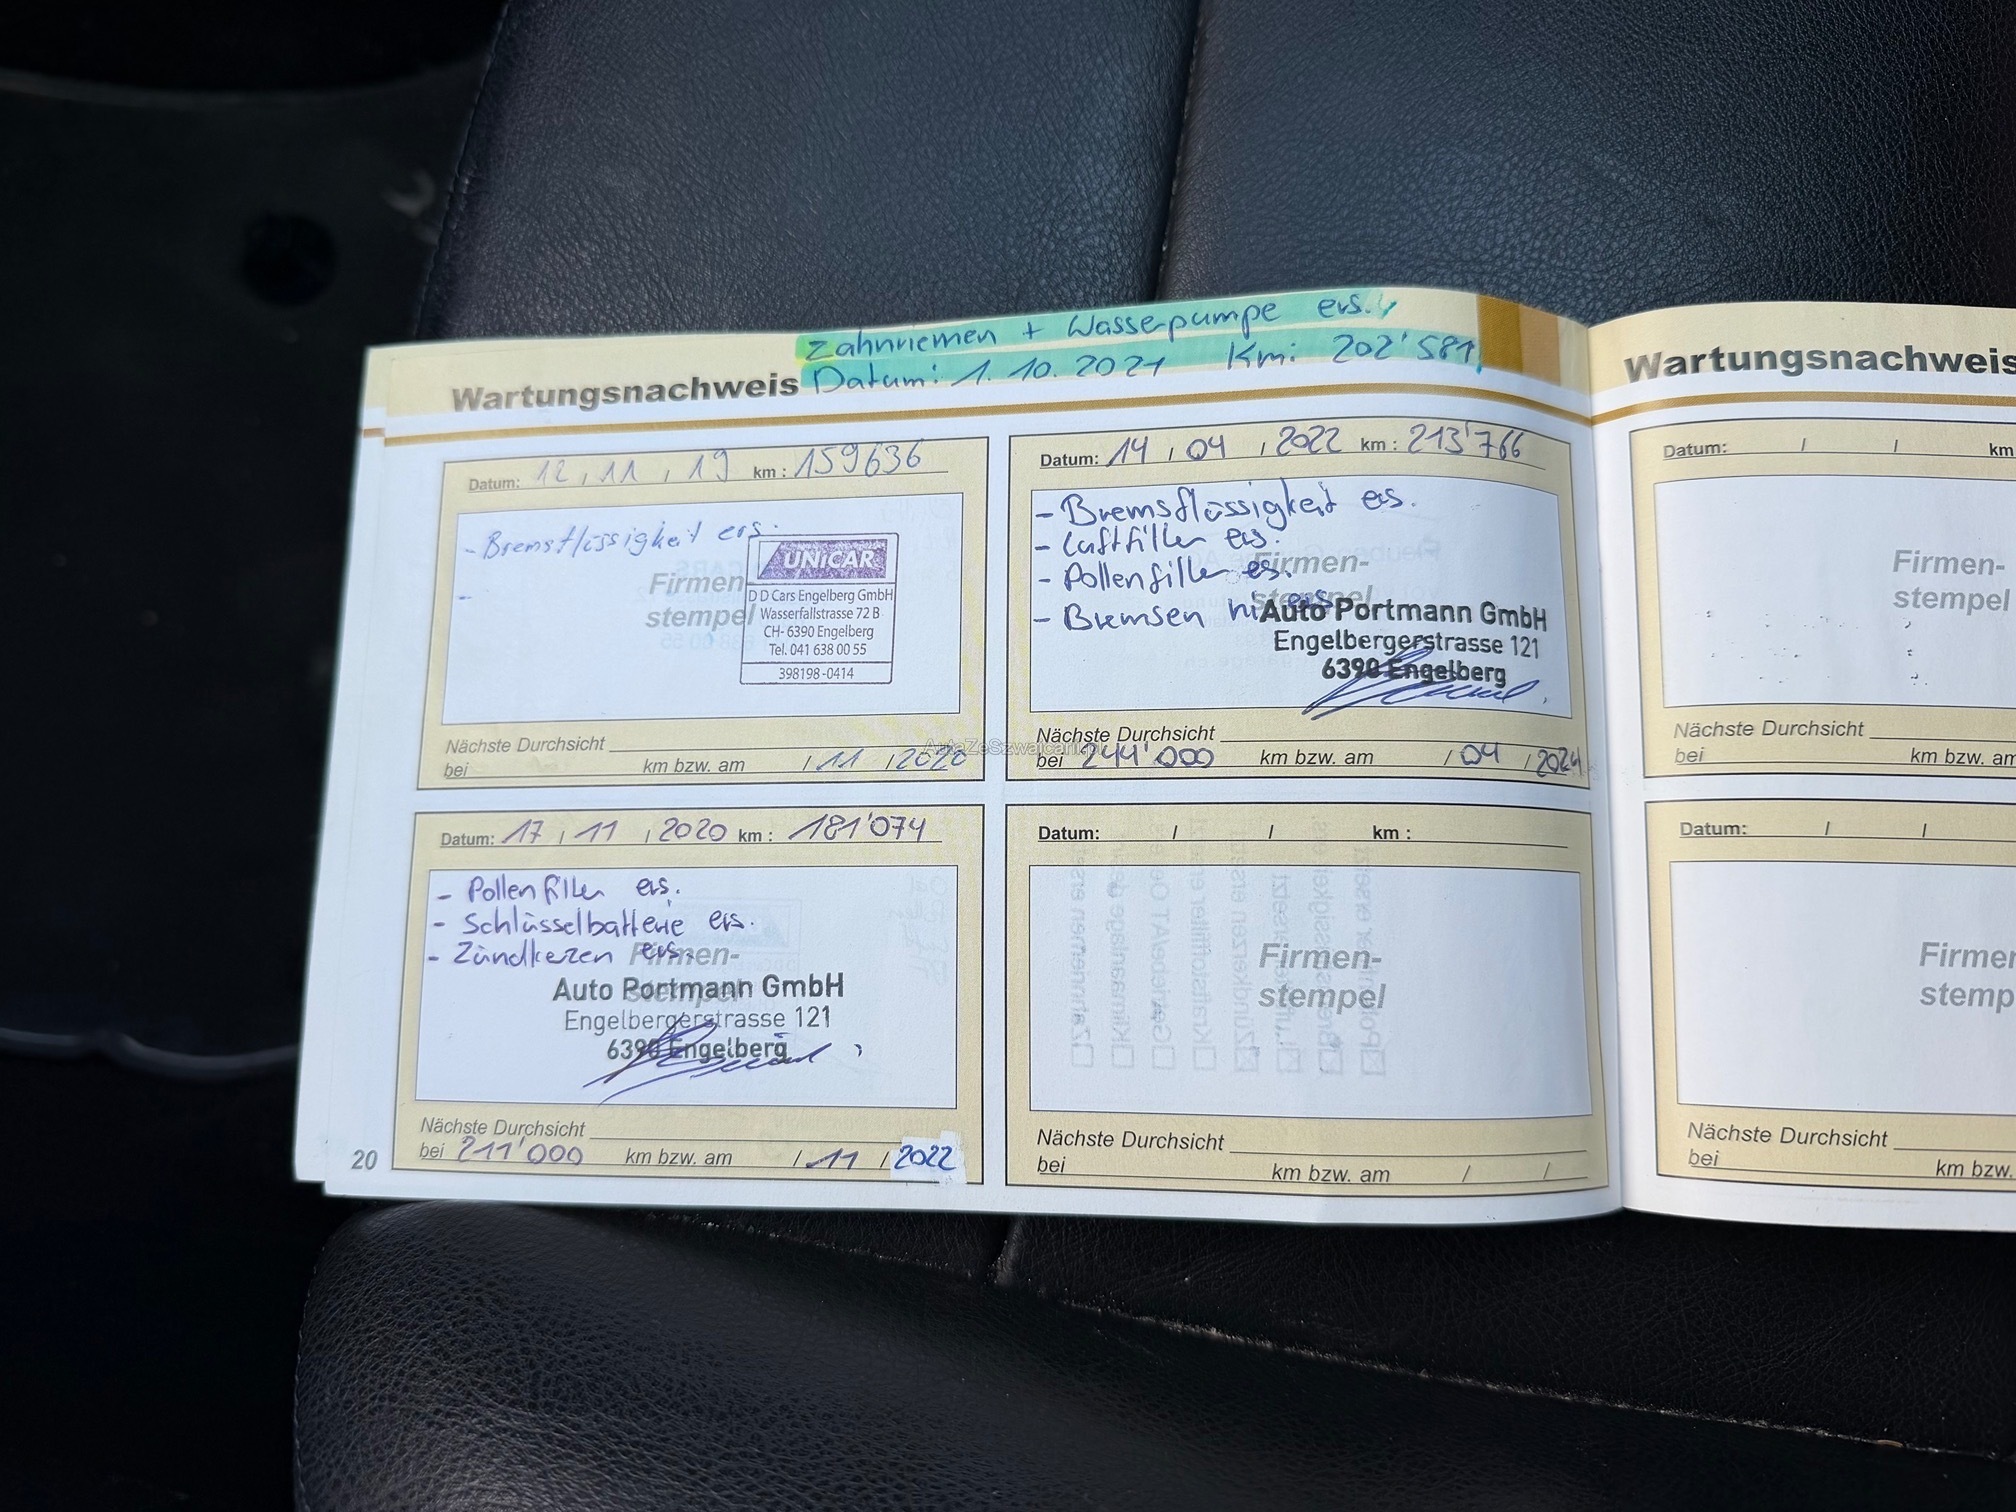 Zahnriemen + Wasserpumpe ers.
Wartungsnachweis Datum: 1.10.2021 Km: 202'581
Datum: 12 / 11 / 19 km: 159636
- Bremsflüssigkeit ers.
-
Firmen-
stempel
UNiCAR
D D Cars Engelberg GmbH
Wasserfallstrasse 72 B
CH- 6390 Engelberg
Tel. 041 638 00 55
398198-0414
Nächste Durchsicht
bei km bzw. am / 11 / 2020
Datum: 14 / 04 / 2022 km: 213'766
- Bremsflüssigkeit ers.
- Luftfilter ers.
- Pollenfilter ers.
- Bremsen hi ers
Firmen-
stempel
Auto Portmann GmbH
Engelbergerstrasse 121
6390 Engelberg
Nächste Durchsicht
bei 244'000 km bzw. am / 04 / 2024
Datum: 17 / 11 / 2020 km: 181'074
- Pollenfilter ers.
- Schlüsselbatterie ers.
- Zündkerzen ers.
Firmen-
stempel
Auto Portmann GmbH
Engelbergerstrasse 121
6390 Engelberg
Nächste Durchsicht
bei 211'000 km bzw. am / 11 / 2022
20
Datum: / / km:
Firmen-
stempel
Nächste Durchsicht
bei km bzw. am / /
Wartungsnachweis
Datum: / / km
Firmen-
stempel
Nächste Durchsicht
bei km bzw. am
Datum: / /
Firmen-
stemp
Nächste Durchsicht
bei km bzw.
AutaZeSzwajcarii.pl